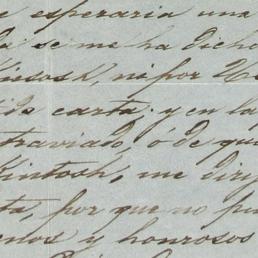 e esperaria una
la se me ha dicho
Kintosh, ni por
carta; y en la
traviado, ó de que
Kintosh, me diri
ta, por que no pu
enos y honrosos